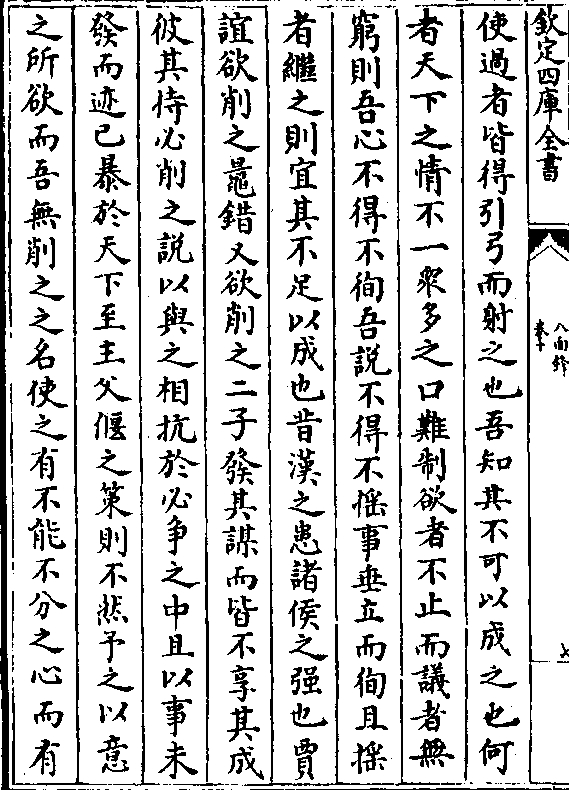 欽定四庫全書
八面鋒
卷十
七
使過者皆得引弓而射之也吾知其不可以成之也何
者天下之情不一衆多之口難制欲者不止而議者無
窮則吾心不得不徇吾説不得不揺事垂立而徇且揺
者繼之則宜其不足以成也昔漢之患諸侯之强也賈
誼欲削之鼂錯又欲削之二子發其謀而皆不享其成
彼其恃必削之説以與之相抗於必争之中且以事未
發而迹已暴於天下至主父偃之策則不然予之以意
之所欲而吾無削之之名使之有不能不分之心而有